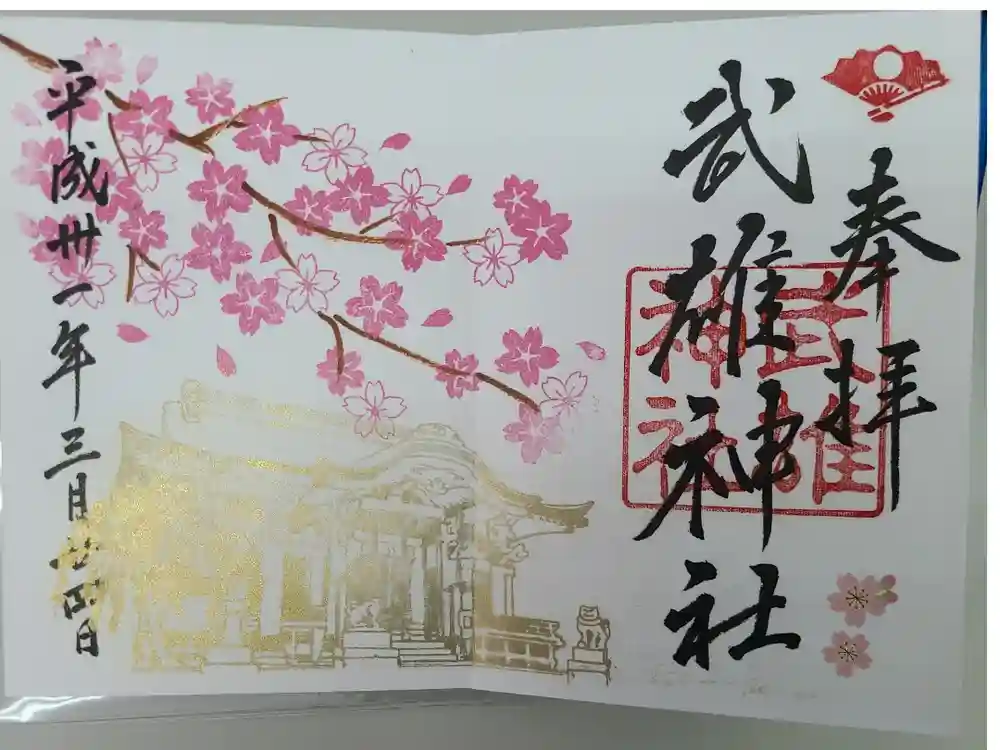 奉拝
武雄神社
武雄神社
平成卅一年三月廿四日